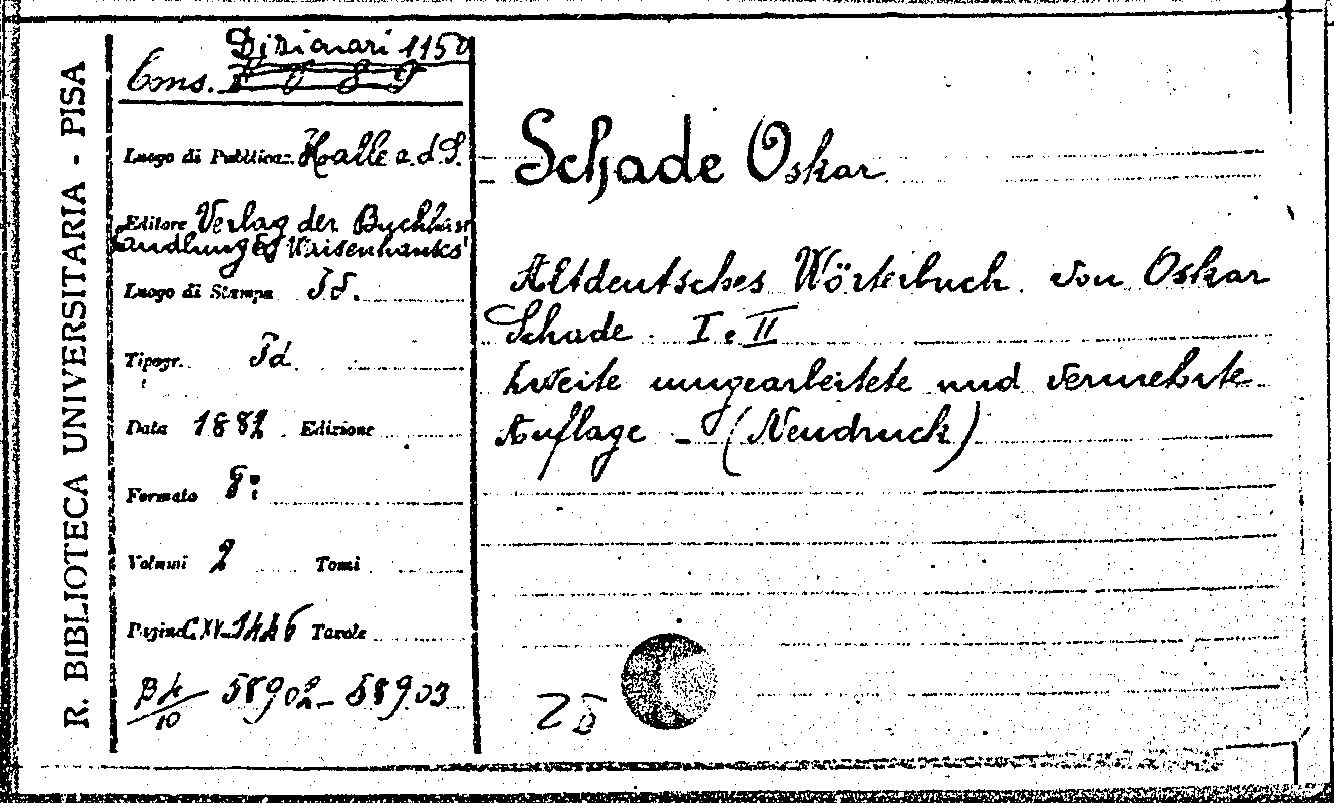 R. BIBLIOTECA UNIVERSITARIA - PISA
Dizionari 1150
Cons.
Luogo di Pubblicaz. Halle a. d. S.
Editore Verlag der Buchhan
andlung des Waisenhauses
Luogo di Stampa Id.
Tipogr. Id.
Data 1882 Edizione
Formato 8º
Volumi 2 Tomi
Pagine CXV-1446 Tavole
58902-58903
Schade Oskar
Altdeutsches Wörterbuch von Oskar
Schade. I e II
Zweite umgearbeitete und vermehrte
Auflage - (Neudruck)